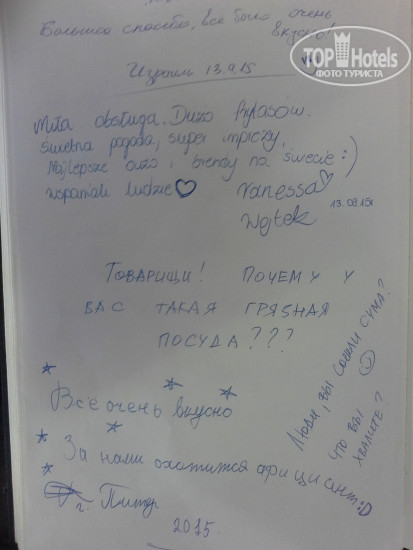 Большое спасибо, всё было очень
вкусно!
TOP Hotels
ФОТО ТУРИСТА
13.9.15
Miła obsługa. Dużo
świetna pogoda, super imprezy,
Najlepsze ouzo i brendy na świecie :)
wspaniali ludzie ♡
Vanessa
Wojtek
13.09.15r
ТОВАРИЩИ! ПОЧЕМУ У
ВАС ТАКАЯ ГРЯЗНАЯ
ПОСУДА???
Люди, вы сошли с ума?
что вы
хвалите?
Всё очень вкусно
За нами охотится официант :D
г. Питер
2015.